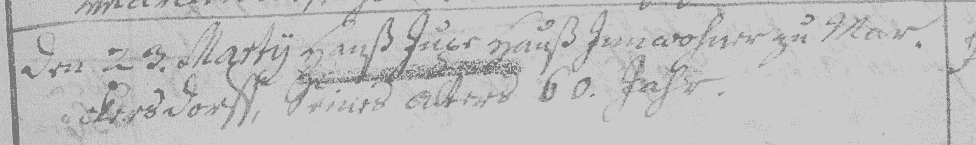 Den 23. Martÿ Hanß Jupe Hauß Innwohner zu Mar-
ckersdorff, Seines alters 60. Jahr.